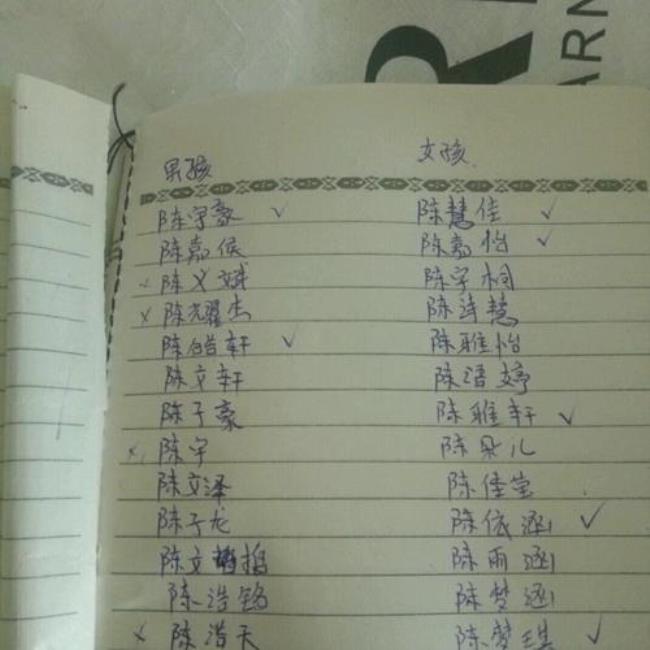 R
ARN
男孩 女孩
陈宇豪 ✓ 陈慧佳 ✓
陈嘉俊 陈嘉怡 ✓
× 陈义斌 陈宇桐
× 陈耀杰 陈诗慧
陈皓轩 ✓ 陈雅怡
陈文轩 陈语婷
陈子豪 陈雅轩 ✓
× 陈宇 陈朵儿
陈文泽 陈佳莹
陈子龙 陈依涵 ✓
陈文 陈雨涵
陈浩铭 陈梦涵
× 陈浩天 陈梦琪 ✓